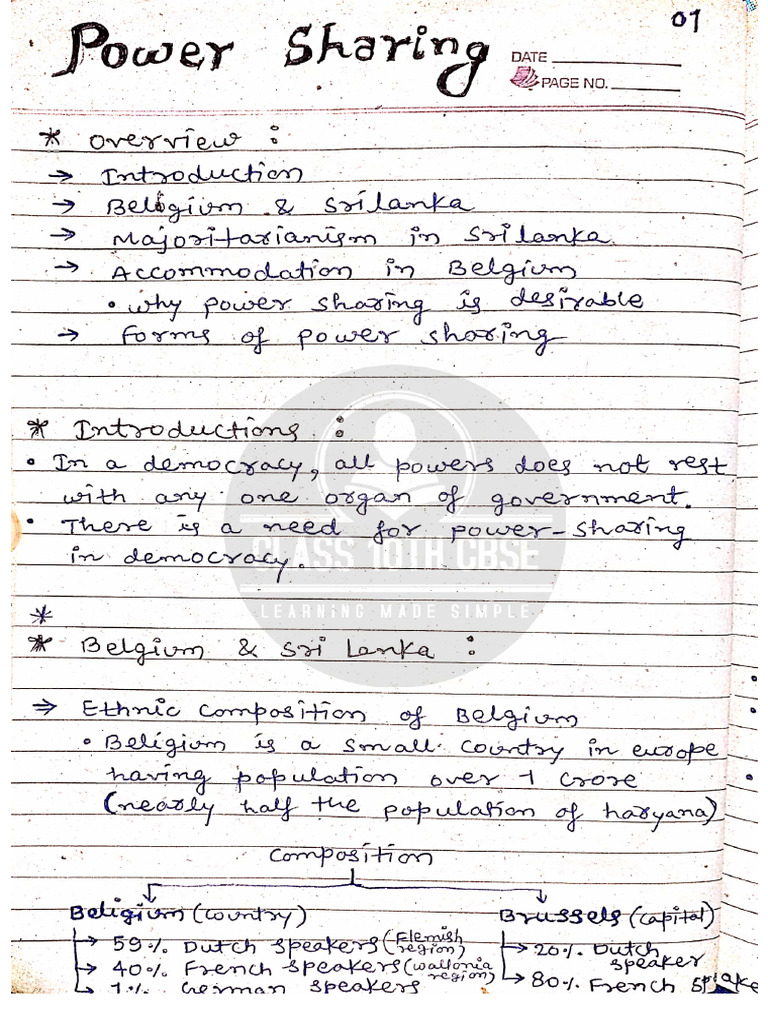 01
Power Sharing
DATE
PAGE NO.
* Overview :
→ Introduction
→ Beligium & Srilanka
→ Majoritarianism in Srilanka.
→ Accommodation in Belgium
• why power sharing is desirable
→ forms of power sharing
* Introductions :
• In a democracy, all powers does not rest
with any one organ of government.
• There is a need for power-sharing
in democracy.
CLASS 10TH CBSE
LEARNING MADE SIMPLE
*
* Belgium & Sri Lanka :
⇒ Ethnic composition of Belgium
• Beligium is a small country in europe
having population over 1 crore
(nearly half the population of haryana)
Composition
Beligium (country)
→ 59% Dutch speakers (Flemish region)
→ 40% French speakers (wallonia region)
→ 1% German speakers
Brussels (capital)
→ 20% Dutch speaker
→ 80% French speake